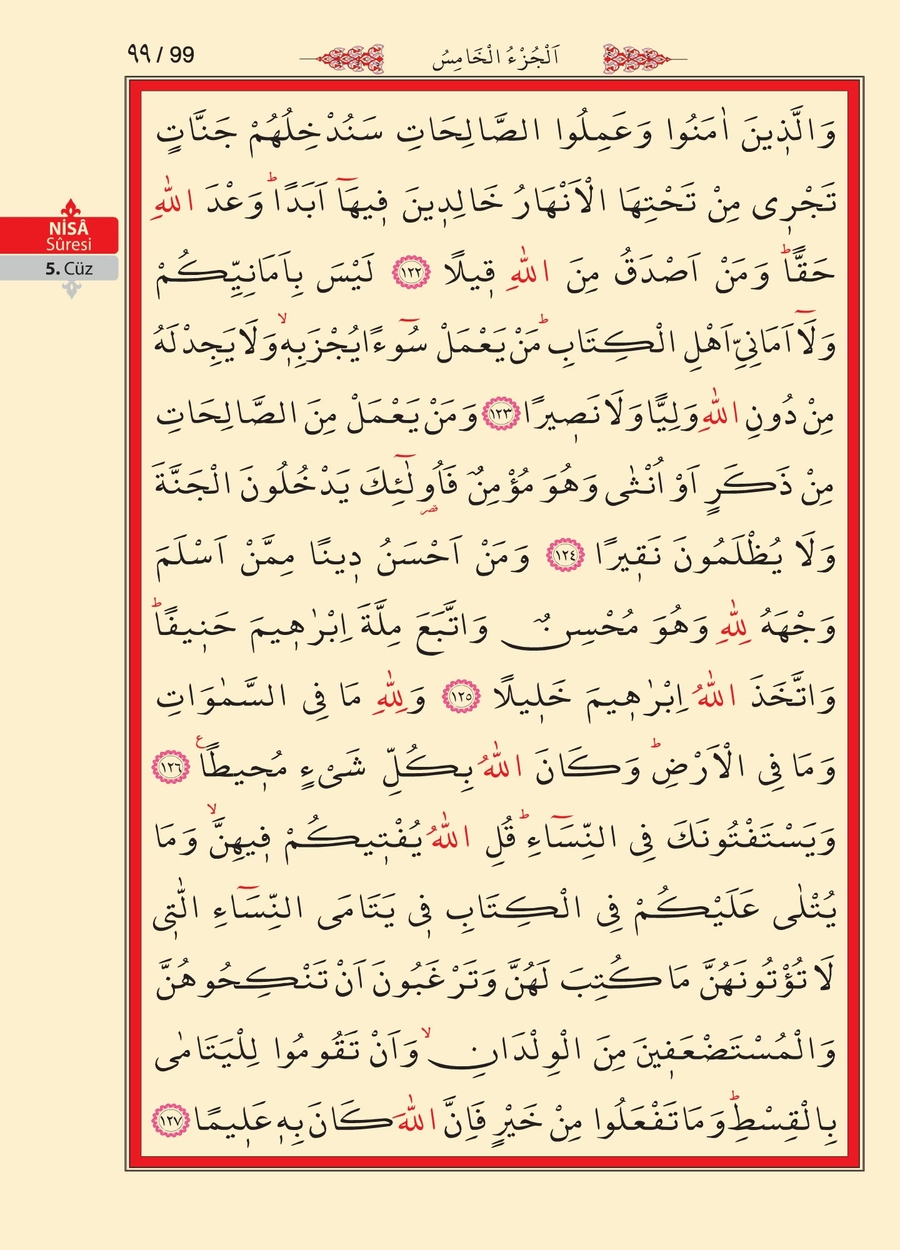 ٩٩ / 99
اَلْجُزْءُ الْخَامِسُ
NİSÂ
Sûresi
5. Cüz
وَالَّذ۪ينَ اٰمَنُوا وَعَمِلُوا الصَّالِحَاتِ سَنُدْخِلُهُمْ جَنَّاتٍ
تَجْر۪ى مِنْ تَحْتِهَا الْاَنْهَارُ خَالِد۪ينَ ف۪يهَٓا اَبَدًاۜ وَعْدَ اللّٰهِ
حَقًّاۜ وَمَنْ اَصْدَقُ مِنَ اللّٰهِ ق۪يلًا ﴿١٢٢﴾ لَيْسَ بِاَمَانِيِّكُمْ
وَلَٓا اَمَانِىِّ اَهْلِ الْكِتَابِۜ مَنْ يَعْمَلْ سُٓوءًا يُجْزَ بِه۪ۙ وَلَا يَجِدْ لَهُ
مِنْ دُونِ اللّٰهِ وَلِيًّا وَلَا نَص۪يرًا ﴿١٢٣﴾ وَمَنْ يَعْمَلْ مِنَ الصَّالِحَاتِ
مِنْ ذَكَرٍ اَوْ اُنْثٰى وَهُوَ مُؤْمِنٌ فَاُو۬لٰٓئِكَ يَدْخُلُونَ الْجَنَّةَ
وَلَا يُظْلَمُونَ نَق۪يرًا ﴿١٢٤﴾ وَمَنْ اَحْسَنُ د۪ينًا مِمَّنْ اَسْلَمَ
وَجْهَهُ لِلّٰهِ وَهُوَ مُحْسِنٌ وَاتَّبَعَ مِلَّةَ اِبْرٰه۪يمَ حَن۪يفًاۜ
وَاتَّخَذَ اللّٰهُ اِبْرٰه۪يمَ خَل۪يلًا ﴿١٢٥﴾ وَلِلّٰهِ مَا فِى السَّمٰوَاتِ
وَمَا فِى الْاَرْضِۜ وَكَانَ اللّٰهُ بِكُلِّ شَىْءٍ مُح۪يطًا۟ ﴿١٢٦﴾
وَيَسْتَفْتُونَكَ فِى النِّسَٓاءِۜ قُلِ اللّٰهُ يُفْت۪يكُمْ ف۪يهِنَّۙ وَمَا
يُتْلٰى عَلَيْكُمْ فِى الْكِتَابِ ف۪ى يَتَامَى النِّسَٓاءِ الّٰت۪ى
لَا تُؤْتُونَهُنَّ مَا كُتِبَ لَهُنَّ وَتَرْغَبُونَ اَنْ تَنْكِحُوهُنَّ
وَالْمُسْتَضْعَف۪ينَ مِنَ الْوِلْدَانِۙ وَاَنْ تَقُومُوا لِلْيَتَامٰى
بِالْقِسْطِۜ وَمَا تَفْعَلُوا مِنْ خَيْرٍ فَاِنَّ اللّٰهَ كَانَ بِه۪ عَل۪يمًا ﴿١٢٧﴾